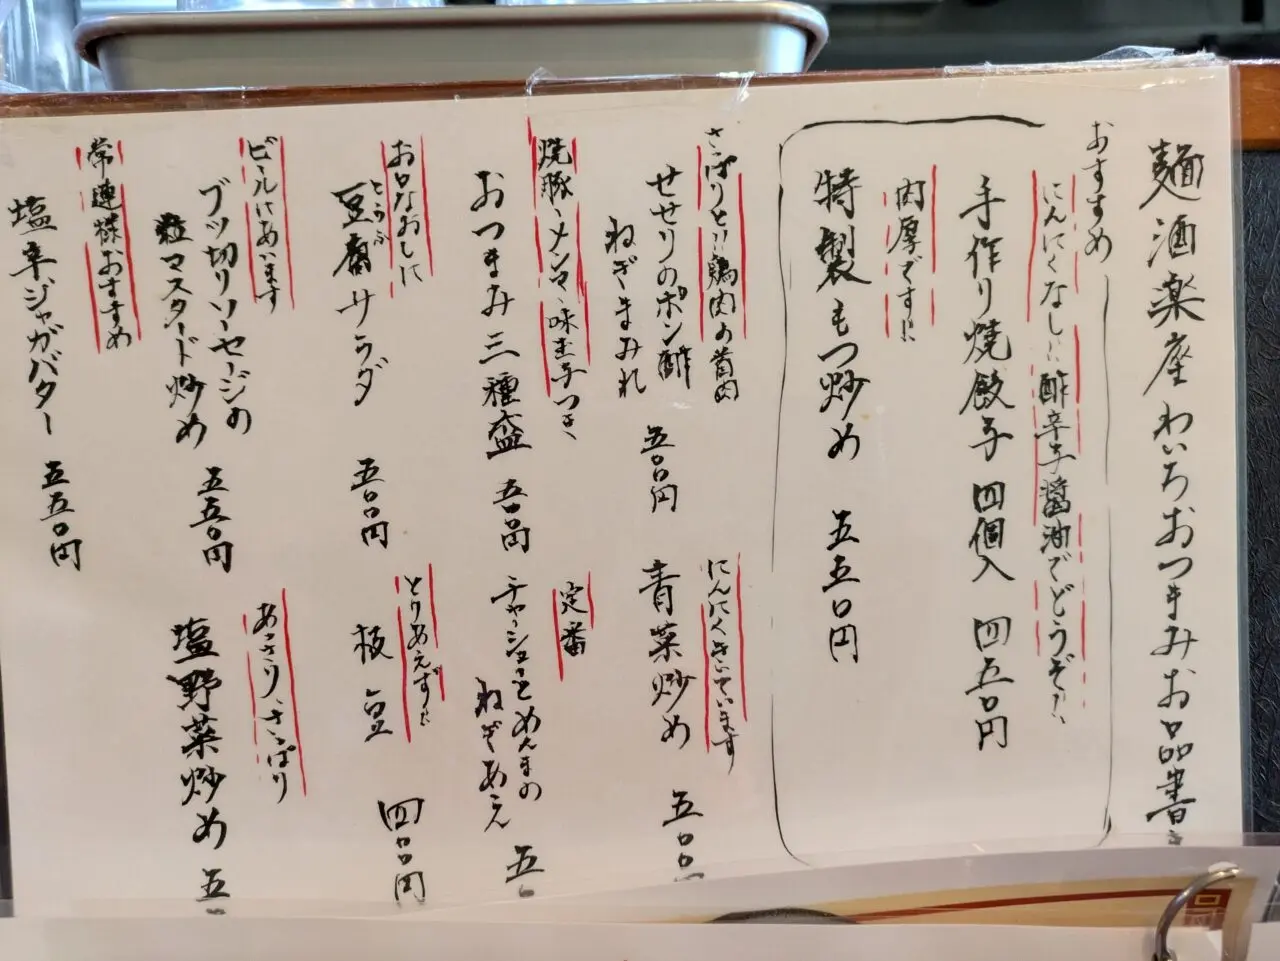 麺酒楽座わいちおつまみお品書き
おすすめ
にんにくなし!!酢辛子醤油でどうぞ!!
手作り焼餃子 四個入 四五〇円
肉厚です!!
特製もつ炒め 五五〇円
さっぱりと!!鶏肉の首肉
せせりのポン酢
ねぎまみれ
五〇〇円
にんにくきいています
青菜炒め 五〇〇
焼豚、メンマ、味玉子つき、
おつまみ三種盛 五〇〇円
定番
チャーシューとめんまの
ねぎあえ 五
お口なおしに
とうふ
豆腐サラダ 五〇〇円
とりあえず!!
枝豆 四〇〇円
ビールにあいます
ブツ切りソーセージの
粒マスタード炒め 五五〇円
あっさり、さっぱり
塩野菜炒め 五
常連様おすすめ
塩辛ジャガバター 五五〇円